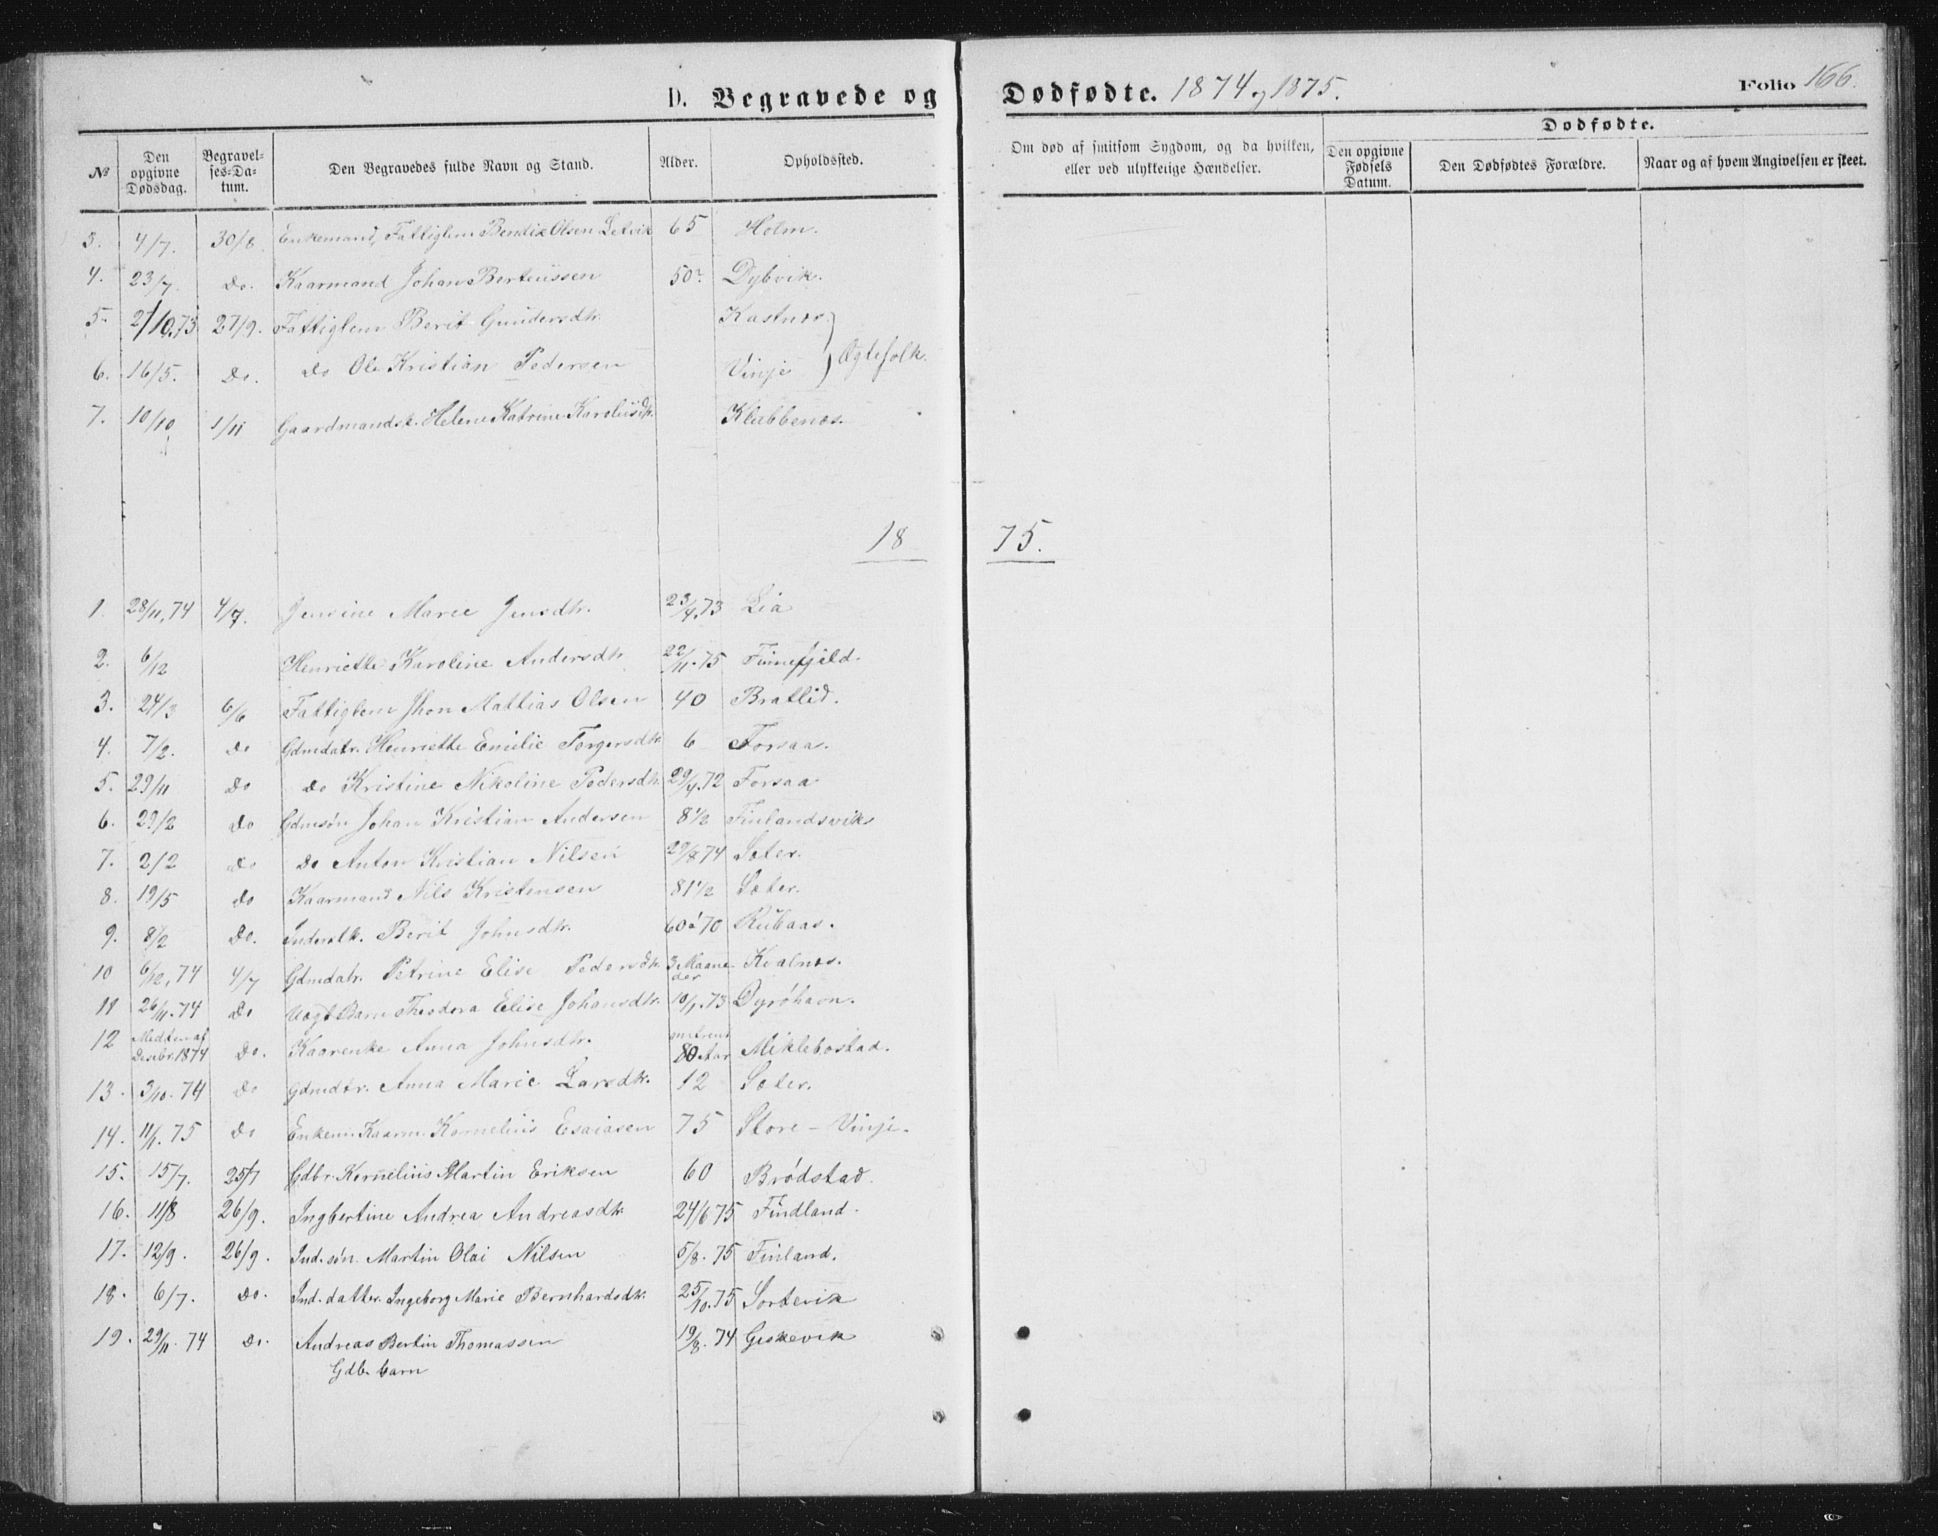 D. Begravede og Dødfødte. 1874 og 1875. Folio 166.
Dødfødte.
№ Den opgivne Dødsdag. Begravelses-Datum. Den Begravedes fulde Navn og Stand. Alder. Opholdssted. Om død af smitsom Sygdom, og da hvilken, eller ved ulykkelige Hændelser. Den opgivne Fødsels Datum. Den Dødfødtes Forældre. Naar og af hvem Angivelsen er skeet.
3. 4/7. 30/8. Enkemand, Fattiglem Bendix Olsen Letvik 65 Holm.
4. 23/7. Do. Kaarmand Johan Berteussen 50? Dybvik.
5. 2/10.73 27/9. Fattiglem Berit Gundersdtr. Kastnæs } Ægtefolk.
6. 16/5. Do. Do Ole Kristian Pedersen Vinje
7. 10/10 1/11 Gaardmandsk. Helene Katrine Karolusdtr. Klubbenæs.
1875.
1. 28/11,74 4/7. Jensine Marie Jensdtr. 23/4.73 Lia
2. 6/12 Henriette Karoline Andersdtr 22/11.75 Finnefjeld.
3. 24/3 6/6 Fattiglem Jhon Mattias Olsen 40 Bratlid.
4. 7/2. do Gdmdatr. Henriette Emilie Torgersdtr 6 Forsaa.
5. 29/11 do do Kristine Nikoline Pedersdtr 29/4.72 Forsaa
6. 29/2 do Gdmsøn Johan Kristian Andersen 8 1/2 Finlandsvik
7. 2/2 do do Anton Kristian Nilsen 29/8 74 Sæter.
8. 19/5 do Kaarmand Nils Kristensen 81 1/2 Sæter.
9. 8/2 Do. Inderstk. Berit Johnsdtr. 60 à 70 Rubaas.
10 6/12,74 4/7 Gdmdatr. Petrine Elise Pedersdtr. 3 Maaneder Kvalnæs.
11 26/11.74 Do Uægt Barn Theodora Elise Johansdtr. 10/1.73 Dyrøhavn.
12 Midten af Decbr. 1874 Do. Kaarenke Anna Johnsdtr. omtrent 80 Aar Miklebostad.
13. 3/10.74 Do Gdmdtr. Anna Marie Larsdtr. 12 Sæter.
14. 11/1.75 Do Enkem. Kaarm. Kornelius Esaiasen 75 Store-Vinje.
15. 15/7. 25/7 Gdbr. Kornelius Martin Eriksen 60 Brødstad.
16. 11/8 26/9. Ingbertine Andrea Andreasdtr. 24/6 75 Findland.
17. 12/9. 26/9. Ind. søn. Martin Olai Nilsen 5/8.75 Finland.
18. 6/7. Do. Ind. datter. Ingeborg Marie Bernhardsdtr. 25/10.75 Sortevik
19. 29/11.74 Do. Andreas Bertin Thomassen 19/8.74 Geskevik
Gdb. barn